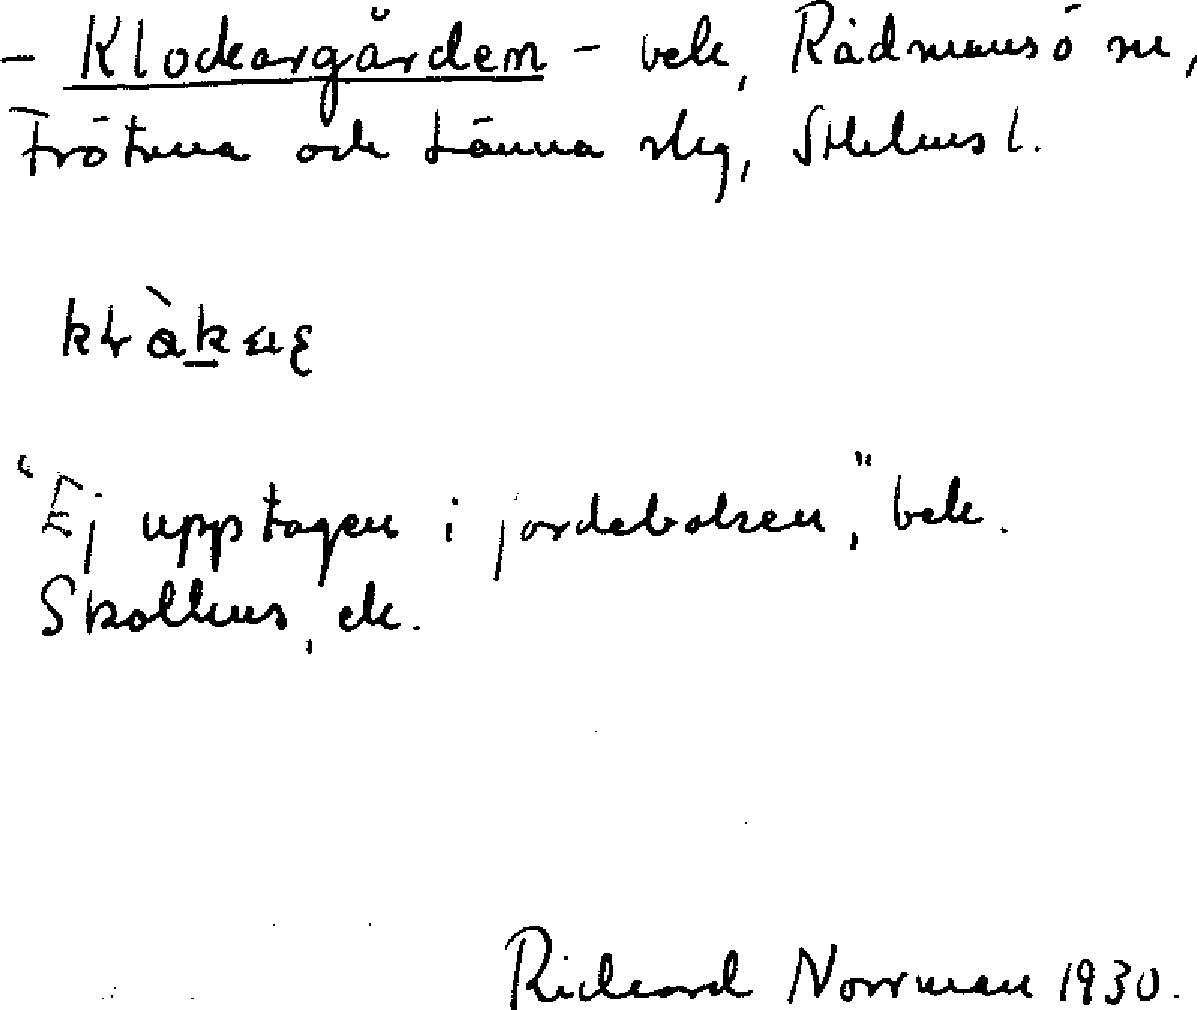 - Klockargården - bek, Rådmansö sn,
Frötuna och Länna skg, Sthlms l.
"Ej upptagen i jordeboken," bek.
Skolhus, ek.
Richard Norrman 1930.